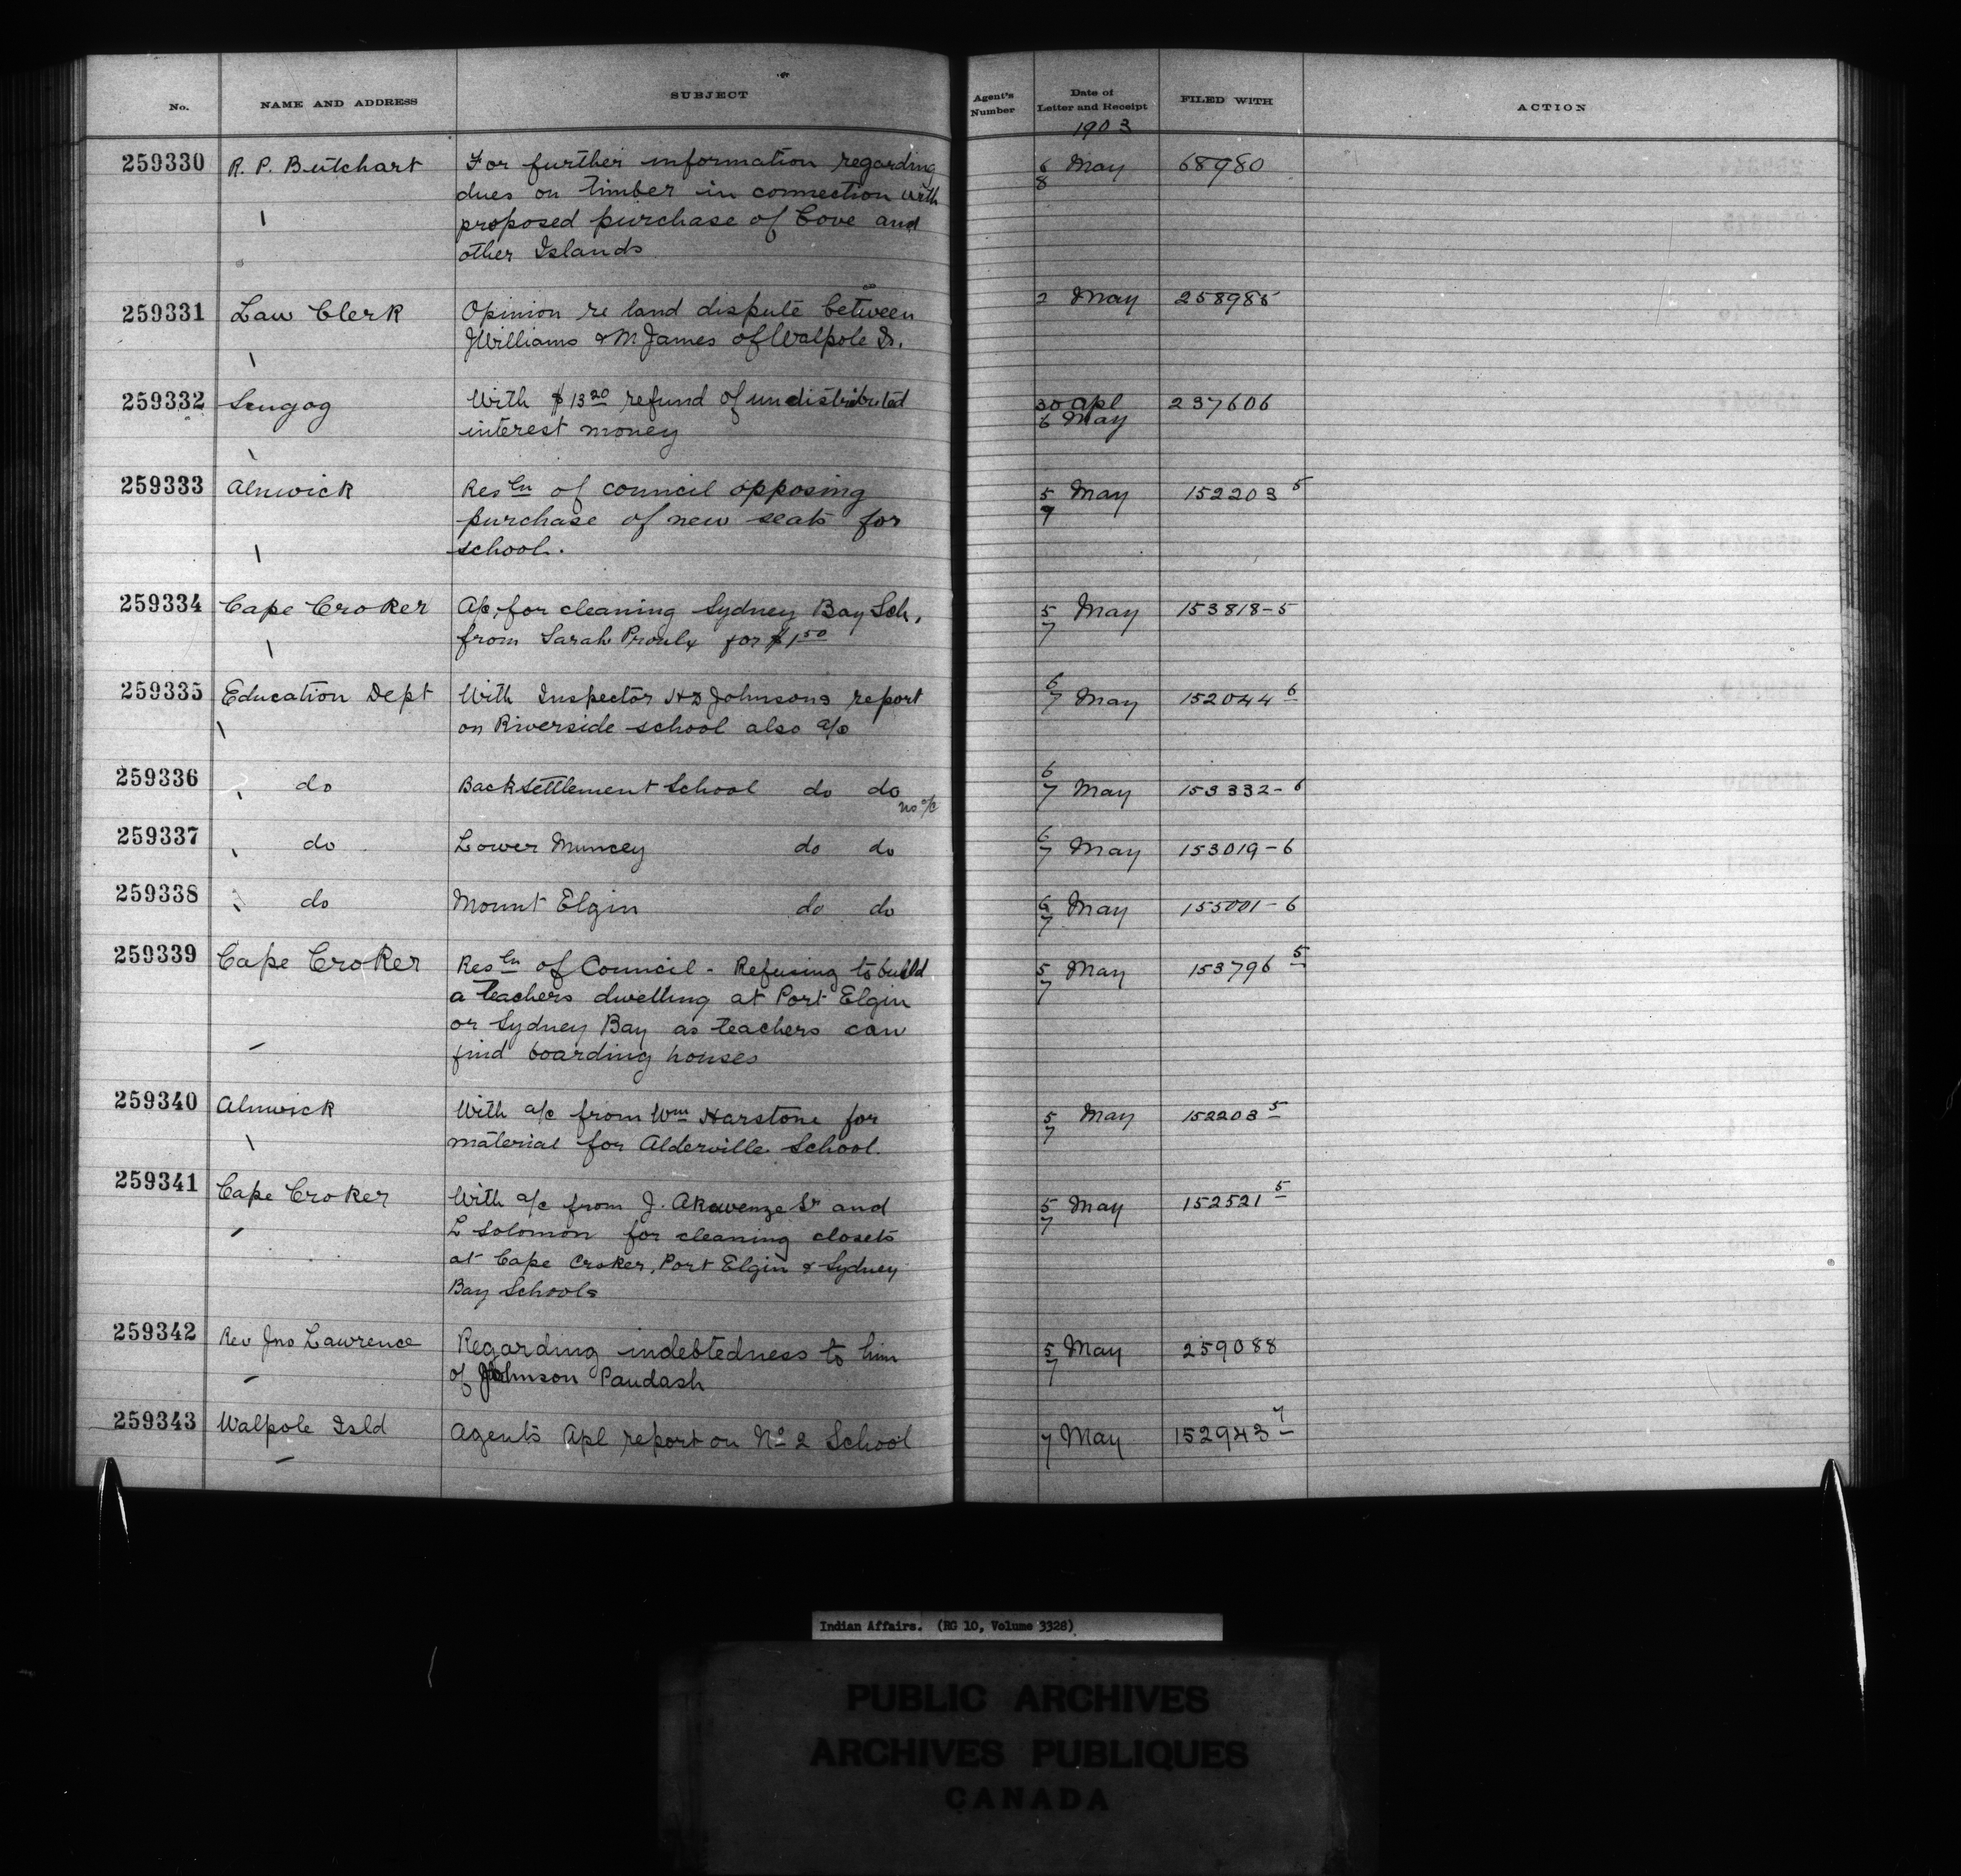 No. NAME AND ADDRESS SUBJECT Agent's Number Date of Letter and Receipt FILED WITH ACTION
1903
259330 R. P. Butchart For further information regarding 6 May 68980
dues on timber in connection with 8
proposed purchase of Cove and
other Islands
259331 Law Clerk Opinion re land dispute between 2 May 258985
JWilliams & M James of Walpole Is.
259332 Scugog With $13 20 refund of undistributed 30 Apl 237606
interest money 6 May
259333 Alnwick Resln of council opposing 5 May 152203 5
purchase of new seats for 9
school.
259334 Cape Croker A/c for cleaning Sydney Bay Sch, 5 May 153818-5
from Sarah Proulx for $1 50 7
259335 Education Dept With Inspector HD Johnsons report 6/7 May 152044 6
on Riverside school also a/c
259336 do Back Settlement School do do 6/7 May 153332-6
no a/c
259337 do Lower Muncey do do 6/7 May 153019-6
259338 do Mount Elgin do do 6/7 May 155001-6
259339 Cape Croker Resln of Council - Refusing to build 5 May 153796 5
a teachers dwelling at Port Elgin 7
or Sydney Bay as teachers can
find boarding houses
259340 Alnwick With a/c from Wm Harstone for 5 May 152203 5
material for Alderville School. 7
259341 Cape Croker With a/c from J. Akewenze Sr and 5 May 152521 5
L Solomon for cleaning closets 7
at Cape Croker, Port Elgin & Sydney
Bay Schools
259342 Rev Jno Lawrence Regarding indebtedness to him 5 May 259088
of Johnson Paudash 7
259343 Walpole Isld Agents Apl report on No 2 School 7 May 152943 7
Indian Affairs. (RG 10, Volume 3328)
PUBLIC ARCHIVES
ARCHIVES PUBLIQUES
CANADA